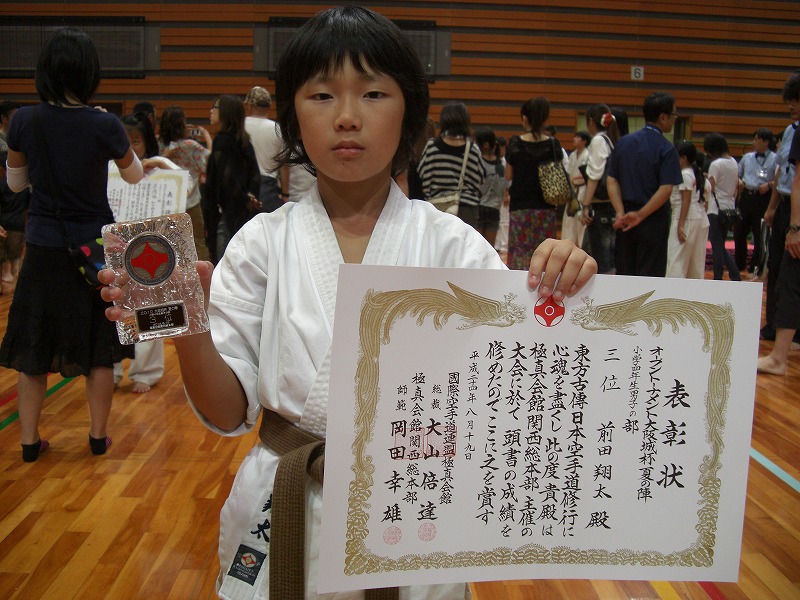 表彰状
オープントーナメント大阪城杯夏の陣
小学四年生男子の部
三位 前田翔太殿
東方古傳日本空手道修行に
心魂を盡くし此の度貴殿は
極真会館関西総本部主催の
大会に於て頭書の成績を
修めたのでここに之を賞す
平成二十四年八月十九日
國際空手道連盟極真会館
総裁 大山倍達
極真会館関西総本部
師範 岡田幸雄
6